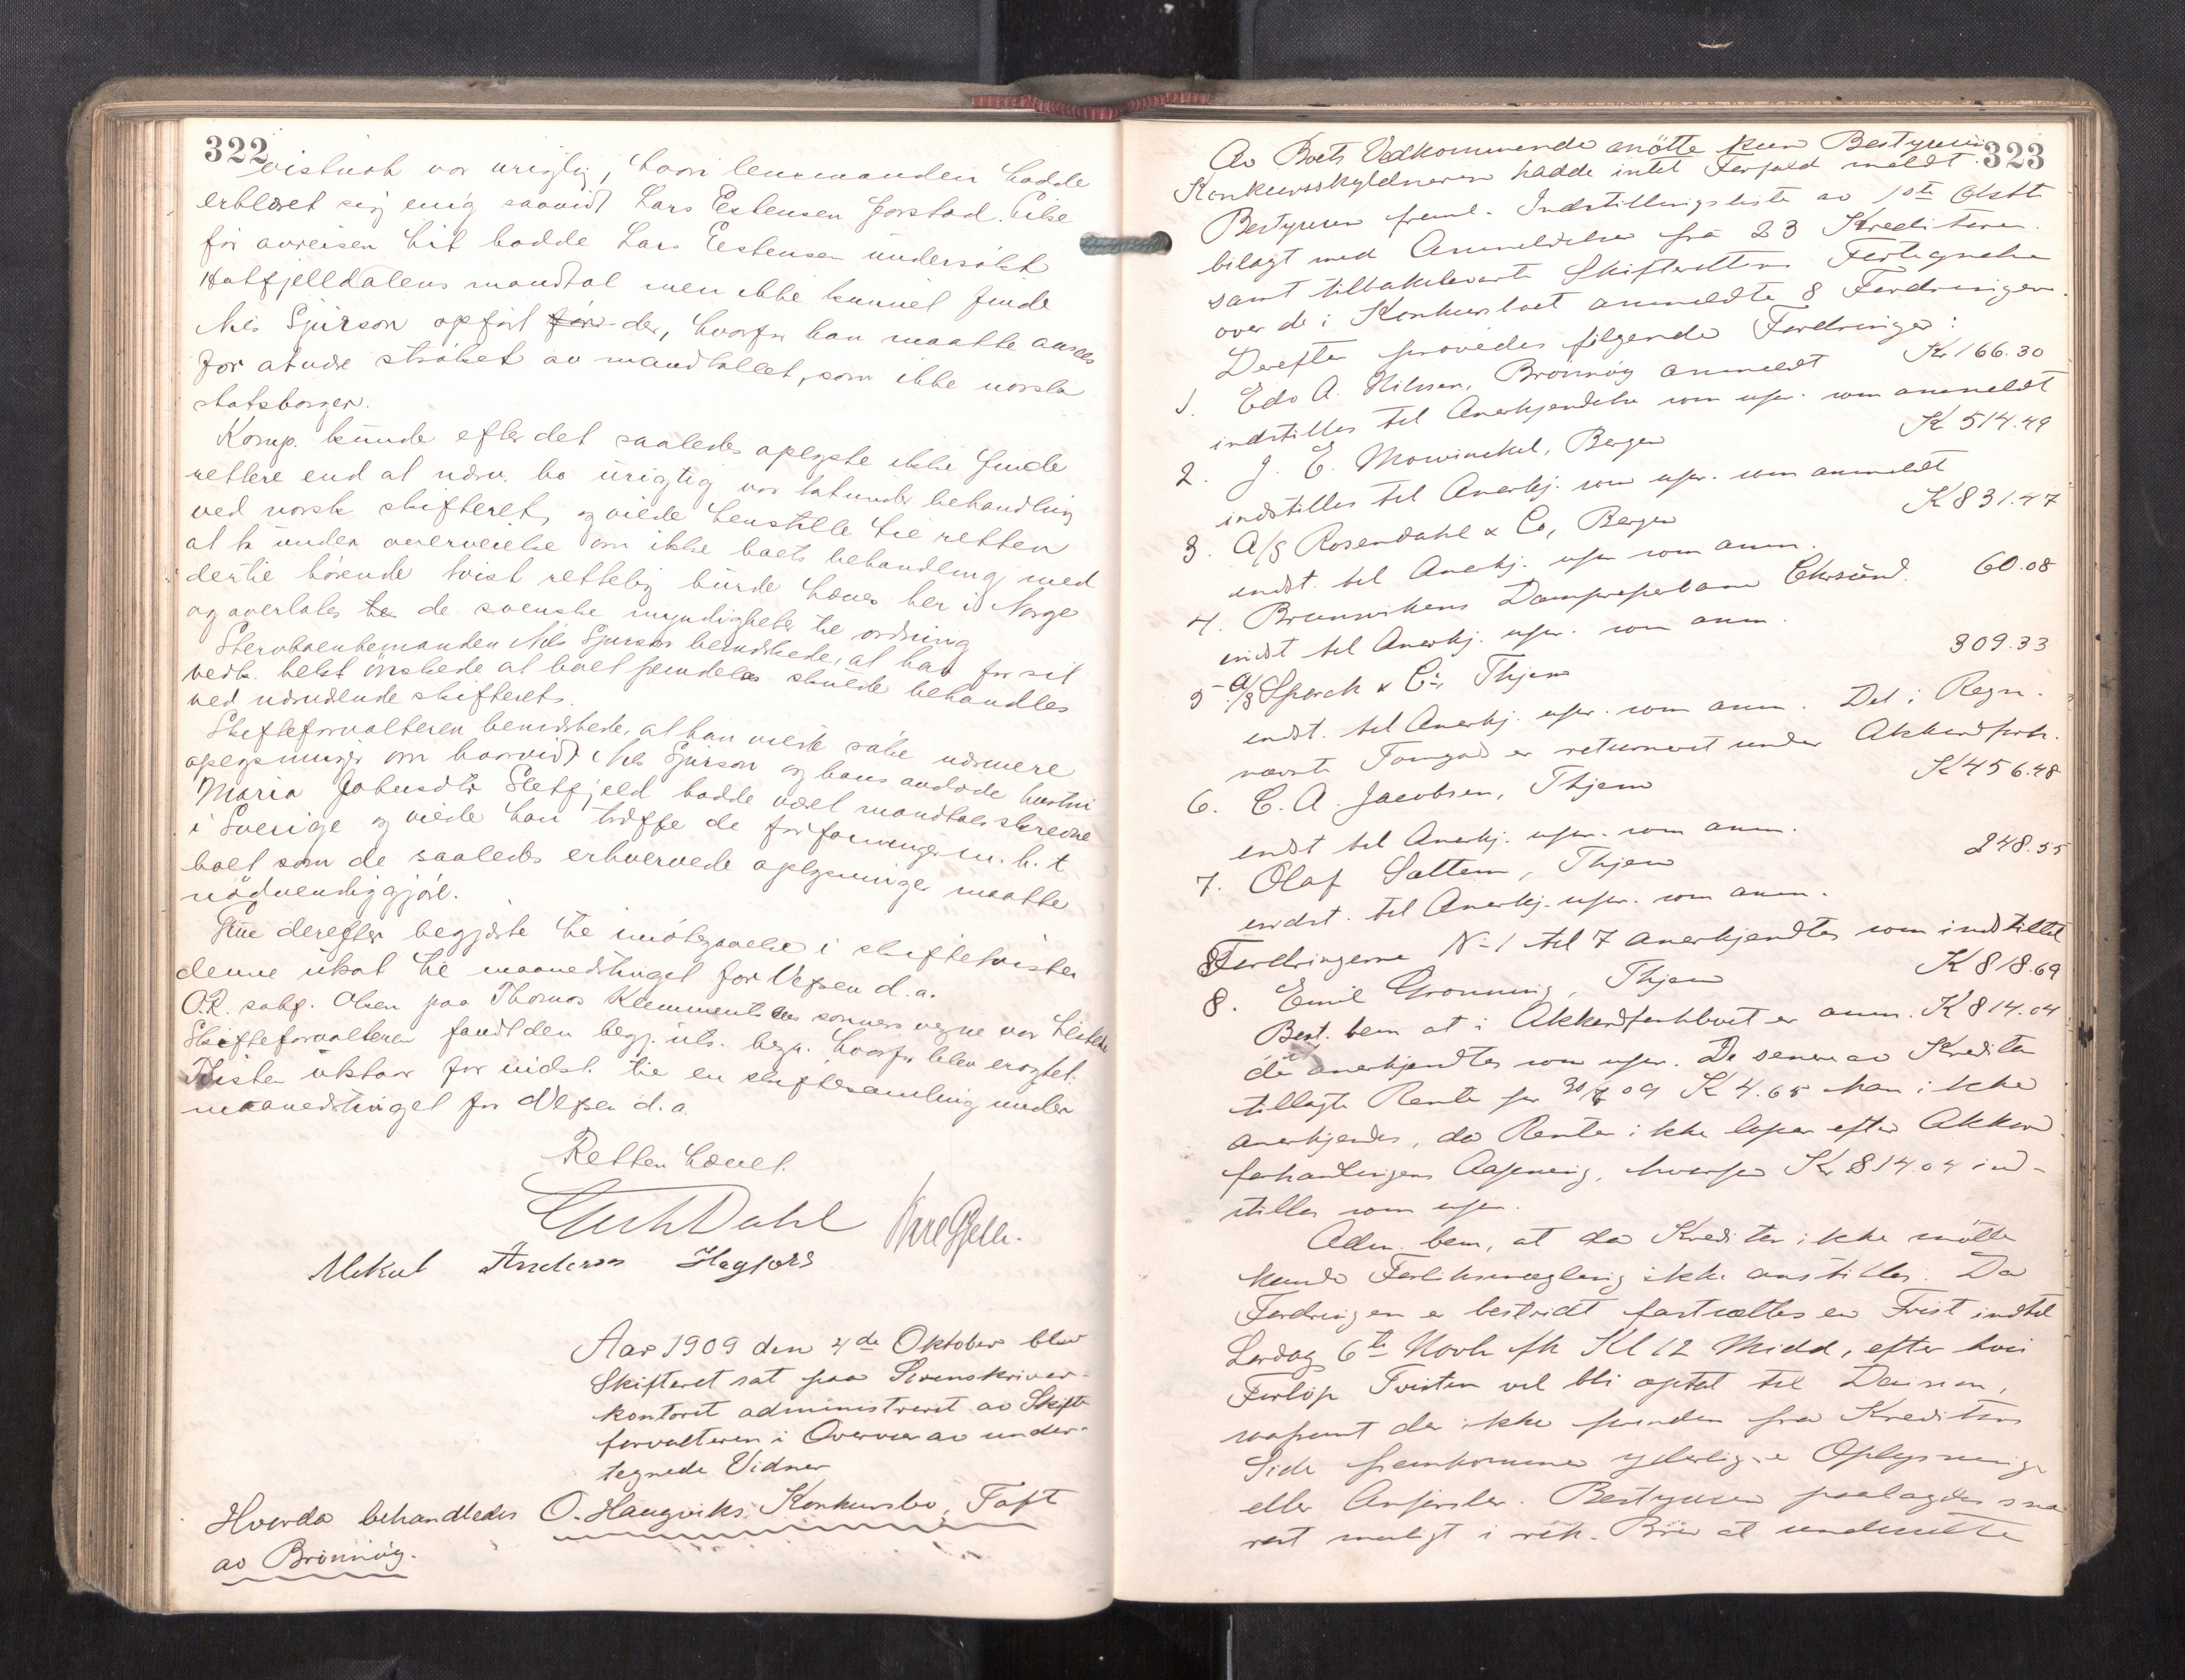 322
vistnok var urigtig, hvori lensmanden hadde
erklæret sig enig saavidt Lars Estensen Jorstad. Like
før avreisen hit hadde Lars Estensen undersøkt
Hatfjelldalens mandtal men ikke kunnet finde
Nils Sjurson opført før der, hvorfor han maatte ansees
for at være strøket av mandtallet, som ikke norsk
statsborger.
Komp. kunde efter det saaledes oplyste ikke finde
rettere end at nærv. bo urigtig var tat under behandling
ved norsk skifteret, og vilde henstille til retten
at ta under overveielse om ikke boets behandling med
dertil hørende tvist rettelig burde hæves her i Norge
og overlates til de svenske myndigheter til ordning
Stervboenkemanden Nils Sjurson bemerkede, at han for sit
vedk. helst ønskede at boet fremdeles skulde behandles
ved nærværende skifteret.
Skifteforvalteren bemerkede, at han vilde søke nærmere
oplysninger om hvorvidt Nils Sjurson og hans avdøde hustru
Maria Johnsdtr Sletfjeld hadde været mandtalsskrevne
i Sverige og vilde han træffe de forføininger m. h. t
boet som de saaledes erhvervede oplysninger maatte
nødvendiggjøre.
derefter begjærte til imøtegaaelse i skiftetvisten
denne utsat til maanedstinget for Vefsen d. a.
O.R. sakf. Olsen paa Thomas Klemmentsens sønners vegne var tilstede
Skifteforvalteren fandt den begj. uts. begr. hvorfor blev eragtet:
Tvisten utstaar for indst. til en skiftesamling under
maanedstinget for Vefsen d. a.
Retten hævet.
Dahl
Mekal Anderson Hagfors
Aar 1909 den 4de Oktober blev
Skifteret sat paa Sorenskriver-
kontoret administreret av Skifte
forvalteren i Overvær av under-
tegnede Vidner
Hvorda behandledes O. Haugviks Konkursbo, Toft
av Brönnöy.
323
Av Boets Vedkommende mötte kun Bestyreren
Konkursskyldneren hadde intet Forfald meldt.
Bestyreren freml. Indstillingsliste av 1ste Oktbr
bilagt med Anmeldelser fra 23 Kreditorer.
samt tilbakeleverte Skifterettens Fortegnelse
over de i Konkursboet anmeldte 8 Fordringer.
Derefter prövedes fölgende Fordringer:
1. Edv A. Nilssen, Brönnöy anmeldt Kr 166.30
indstilles til Anerkjendelse som upr. som anmeldt
2. J. E. Mowinckel, Bergen K 514.49
indstilles til Anerkj. som upr. som anmeldt
3. A/S Rosendahl & Co, Bergen K 831.47
indst. til Anerkj. upr som anm.
4. Brunvikens Damprepebane Chrsund. 60.08
indst til Anerkj. upr. som anm.
5 A/S Sparck & Co, Thjem 309.33
indst. til Anerkj. upr. som anm. Det i Regn.
nævnte Tomgods er returneret under Akkordforh.
6. C. A. Jacobsen, Thjem K 456.48
indst til Anerkj. upr. som anm.
7. Olaf Sættem, Thjem 248.55
indst. til Anerkj. upr. som anm.
Fordringerne N-1 til 7 anerkjendtes som indstillet
8. Emil Gronning, Thjem K 818.69
Best. bem at i Akkordforhboet er anm. K 814.04
der anerkjendtes som upr. De senere av Kreditor
tillagte Rente pr 30/7 09 K 4.65 kan ikke
anerkjendes, da Renter ikke løper efter Akkord
forhandlingens Aapning, hvorfor Kr 814.04 ind-
stilles som upr.
Adm. bem, at da Kreditor ikke mötte
kunde Forliksmægling ikke anstilles. Da
Fordringen er bestridt fastsættes en Frist indtil
Lordag 6te Novbr fk Kl 12 Midd, efter hvis
Forlöp Tvisten vil bli optat til Decision,
saafremt der ikke forinden fra Kreditors
Side fremkommer yderligere Oplysninger
eller Anförsler. Bestyreren paalagdes sna
rest muligt i rek. Brev at underrette